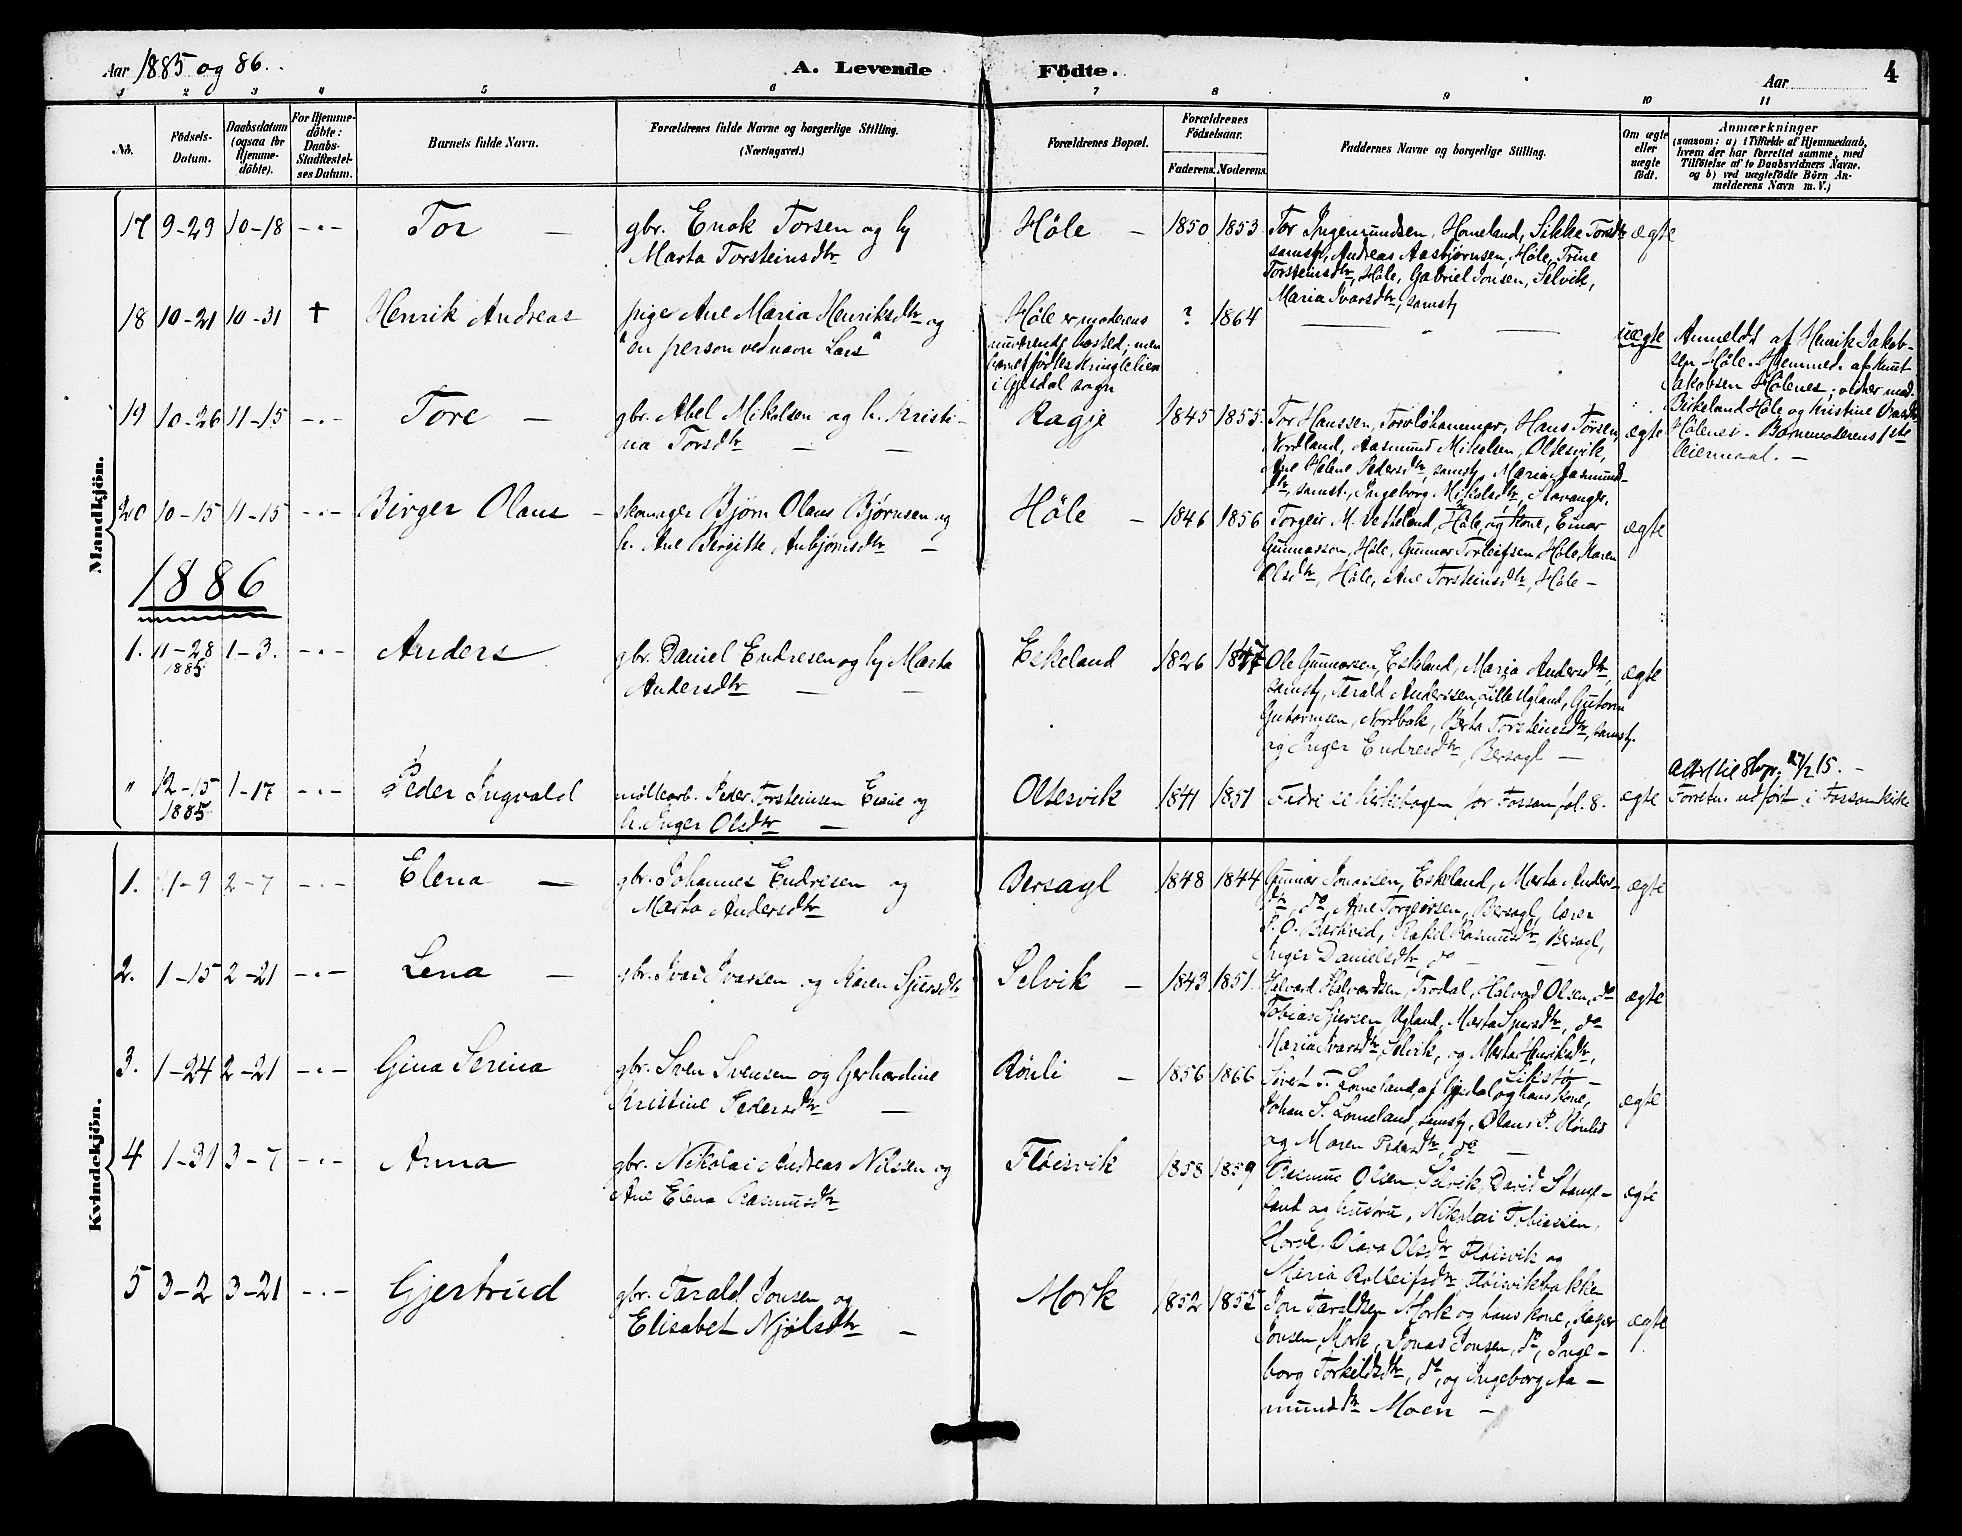 Aar 1885 og 86.
A. Levende Födte.
Aar
4
1 2 3 4 5 6 7 8 9 10 11
No.
Födsels-
Datum.
Daabsdatum
(ogsaa for
Hjemme-
döbte).
For Hjemme-
döbte:
Daabs-
Stadfæstel-
ses Datum.
Barnets fulde Navn.
Forældrenes fulde Navne og borgerlige Stilling.
(Næringsvei.)
Forældrenes Bopæl.
Forældrenes
Födselsaar.
Faderens. Moderens.
Faddernes Navne og borgerlige Stilling.
Om ægte
eller
uægte
födt.
Anmærkninger
(saasom: a) i Tilfælde af Hjemmedaab,
hvem der har forrettet samme, med
Tilföielse af to Daabsvidners Navne.
og b) ved uægtefödte Börn An-
melderens Navn m. V.)
Mandkjön.
17 9-29 10-18 -"- Tor —
gbr. Enok Torsen og hu
Marta Torsteinsdtr
Høle —
1850 1853
Tor Ingemundsen, Homeland, Sikke Torsdtr
samst, Andreas Aasbjørnsen, Høle, Trine
Torsteinsdtr, Høle, Gabriel Jonsen, Selvik,
Maria Ivarsdtr, samst
ægte
18 10-21 10-31 † Henrik Andreas
pige Ane Maria Henriksdtr og
"en person ved navn Lars"
Høle er moderens
nuværende bosted; men
barnet fødtes Kringlelien
i Gjesdal sogn
? 1864
— " —
uægte
Anmeldt af Henrik Jakob-
sen Høle. Hjemmed. af Knut
Jakobsen Hølenes; vidner mad.
Birkeland Høle og Kristine
Hølenes. Barnemoderens 1ste
leiermaal. —
19 10-26 11-15 -"- Tore —
gbr. Abel Mikalsen og h. Kristi-
na Torsdtr — —
Ragje
1845 1855
Tor Hanssen, Hans Torsen,
Nordland, Aasmund Mikalsen, Oltesvik,
Ane Helene Pedersdtr, samst, Maria Aasmunds-
dtr, samst., Ingeborg Mikalsdtr, Stavanger.
ægte
20 10-15 11-15 -"- Birger Olaus —
skomager Bjørn Olaus Bjørnsen og
h. Ane Bergitte Anbjørnsdtr —
Høle —
1846 1856
Torgeir M. Vetteland, Høle, og kone, Einar
Gunnarsson, Høle, Gunnar Torleifsen, Høle, Karen
Olsdtr, Høle, Ane Torsteinsdtr, Høle —
ægte
1886
1. 11-28 1-3. -"- Anders
1885
gbr. Daniel Endresen og hu Marta
Andersdtr — —
Eskeland
1826 1847
Ole Gunnarsen, Eskeland, Maria Andersdtr,
samst, Tarald Anderssen, Lille Ugland, Gutorm
Gutormsen, Nordbak, Berta Torsteinsdtr, samst.
og Inger Endresdtr, Bersagl —
ægte
" 12-15 1-17 -"- Peder Ingvald
1885
møllearb. Peder Torsteinsen Eiane og
h. Inger Olsdtr —
Oltesvik
1841 1851
Fadre se kirkebogen for Fossan fol. 8.
ægte
Attest til 17/2 15. —
Forretn. udført i Fossan kirke
Kvindekjön.
1. 1-9 2-7 -"- Elena —
gbr. Johannes Endresen og
Marta Andersdtr
Bersagl
1848 1844
Gunnar Jonassen, Eskeland, Marta Anders-
dtr, do, Arne Torgeirsen, Bersagl, lærer
P. O. Barkved, Rakel Rasmusdtr, Bersagl,
Inger Danielsdtr, do —
ægte
2. 1-15 2-21 -"- Lena —
gbr. Ivar Ivarsen og Karen Sjursdtr
Selvik —
1843 1851.
Halvard Halvardsen, Trodal, Halvard Olsen, do
Tobias Sjursen, Ugland, Marta Sjursdtr, do
Maria Ivarsdtr, Selvik, og Marta Henriksdtr,
ægte
3. 1-24 2-21 -"- Gina Serina
gbr. Sven Svensen og Gerhardine
Kristine Pedersdtr —
Rönli —
1856 1866
Sivert T. Lomeland, af Gjesdal og hans kone,
Johan S. Lomeland, samst, Olaus P. Rönlid
og Maren Pedersdtr, do —
ægte
4 1-31 3-7 -"- Anna
gbr. Nikolai Andreas Nilsen og
Ane Elena Rasmusdtr
Fløisvik
1858 1859
Rasmus Olsen Selvik, David Stange-
land og hustru, Nikolai Tobiassen,
Horve, Olava Olsdtr Fløisvik og
Maria Rolleifsdtr, Fløisvikbakke
ægte
5 3-2 3-21 -"- Gjertrud
gbr. Tarald Jonsen og
Elisabet Njølsdtr —
Mork
1852 1855
Jon Taraldsen Mork og hans kone, Kasper
Jonsen, Mork, Jonas Jonsen, do, Inge-
borg Torkildsdtr, do, og Ingeborg Aa-
mundsdtr Moen —
ægte.